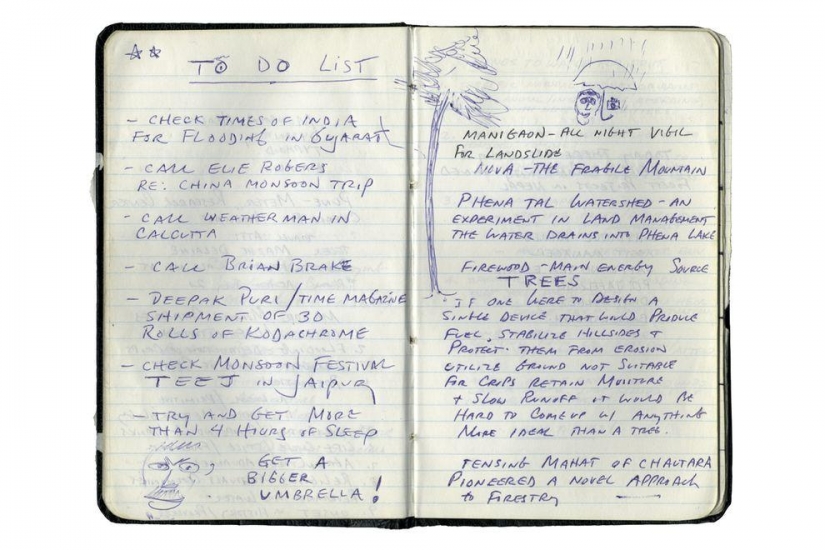 TO DO LIST
- CHECK TIMES OF INDIA
FOR FLOODING IN GUJARAT
- CALL ELIE ROGERS
RE: CHINA MONSOON TRIP
- CALL WEATHERMAN IN
CALCUTTA
- CALL BRIAN BRAKE
- DEEPAK PURI / TIME MAGAZINE
SHIPMENT OF 30
ROLLS OF KODACHROME
- CHECK MONSOON FESTIVAL
TEEJ IN JAIPUR
- TRY AND GET MORE
THAN 4 HOURS OF SLEEP
GET A
BIGGER
UMBRELLA!
MANIGAON - ALL NIGHT VIGIL
FOR LANDSLIDE
NOVA - THE FRAGILE MOUNTAIN
PHENA TAL WATERSHED - AN
EXPERIMENT IN LAND MANAGEMENT
THE WATER DRAINS INTO PHENA LAKE
FIREWOOD - MAIN ENERGY SOURCE
TREES
IF ONE WERE TO DESIGN A
SINGLE DEVICE THAT WOULD PRODUCE
FUEL, STABILIZE HILLSIDES +
PROTECT THEM FROM EROSION
UTILIZE GROUND NOT SUITABLE
FOR CROPS RETAIN MOISTURE
+ SLOW RUNOFF IT WOULD BE
HARD TO COME UP W/ ANYTHING
MORE IDEAL THAN A TREE.
TENSING MAHAT OF CHAUTARA
PIONEERED A NOVEL APPROACH
to FIRESTRY